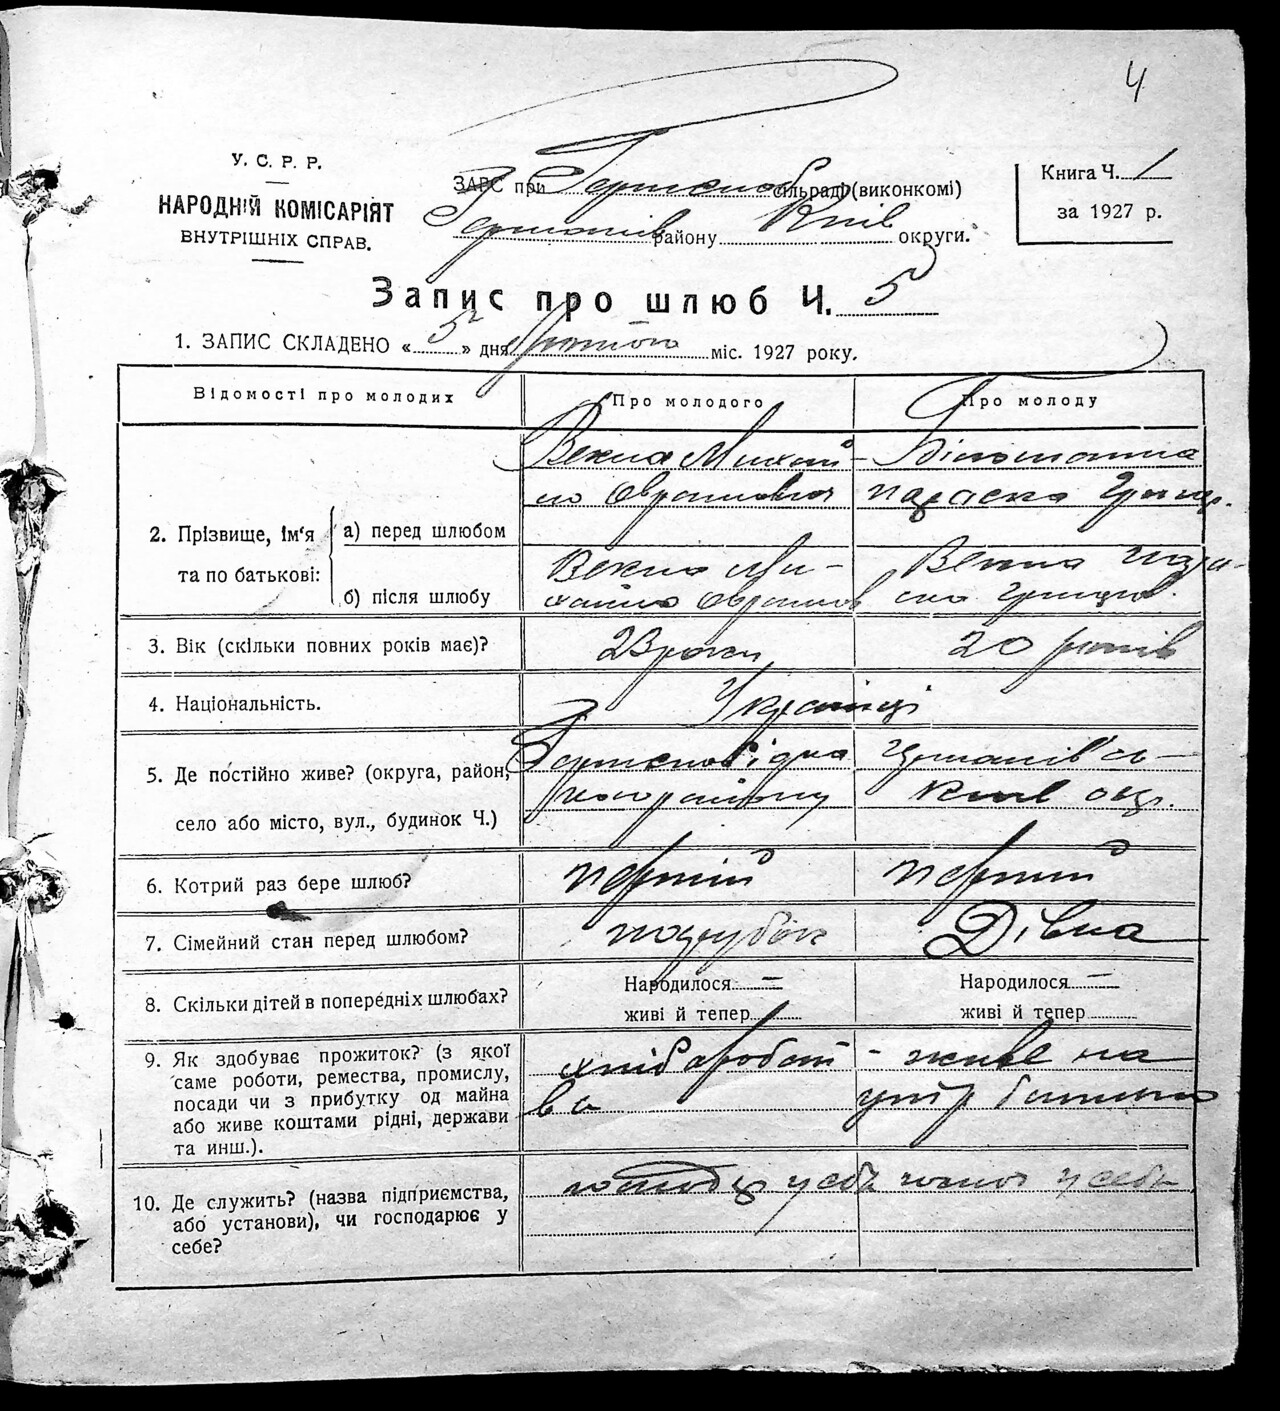 4
У. С. Р. Р.
НАРОДНІЙ КОМІСАРІЯТ
ВНУТРІШНІХ СПРАВ.
ЗАГС при сільраді (виконкомі)
району Київ округи.
Книга Ч. 1
за 1927 р.
Запис про шлюб Ч. 5
1. ЗАПИС СКЛАДЕНО « 5 » дня лютого міс. 1927 року.
Відомості про молодих Про молодого Про молоду
2. Прізвище, ім‘я та по батькові:
а) перед шлюбом
Михай-
ло Овраамович
Параска Григор.
б) після шлюбу
Ми-
хайло Овраамов
Пара-
ска Григоров.
3. Вік (скільки повних років має)? 23 роки 20 років
4. Національність. Українці
5. Де постійно живе? (округа, район,
село або місто, вул., будинок Ч.)
кого району Київ окр.
6. Котрий раз бере шлюб? перший перший
7. Сімейний стан перед шлюбом? парубок Дівка
8. Скільки дітей в попередніх шлюбах?
Народилося — Народилося —
живі й тепер живі й тепер
9. Як здобуває прожиток? (з якої
саме роботи, ремества, промислу,
посади чи з прибутку од майна
або живе коштами рідні, держави
та инш.).
хліборобст-
ва
живе на
утр батька
10. Де служить? (назва підприємства,
або установи), чи господарює у
себе?
у себе у себе